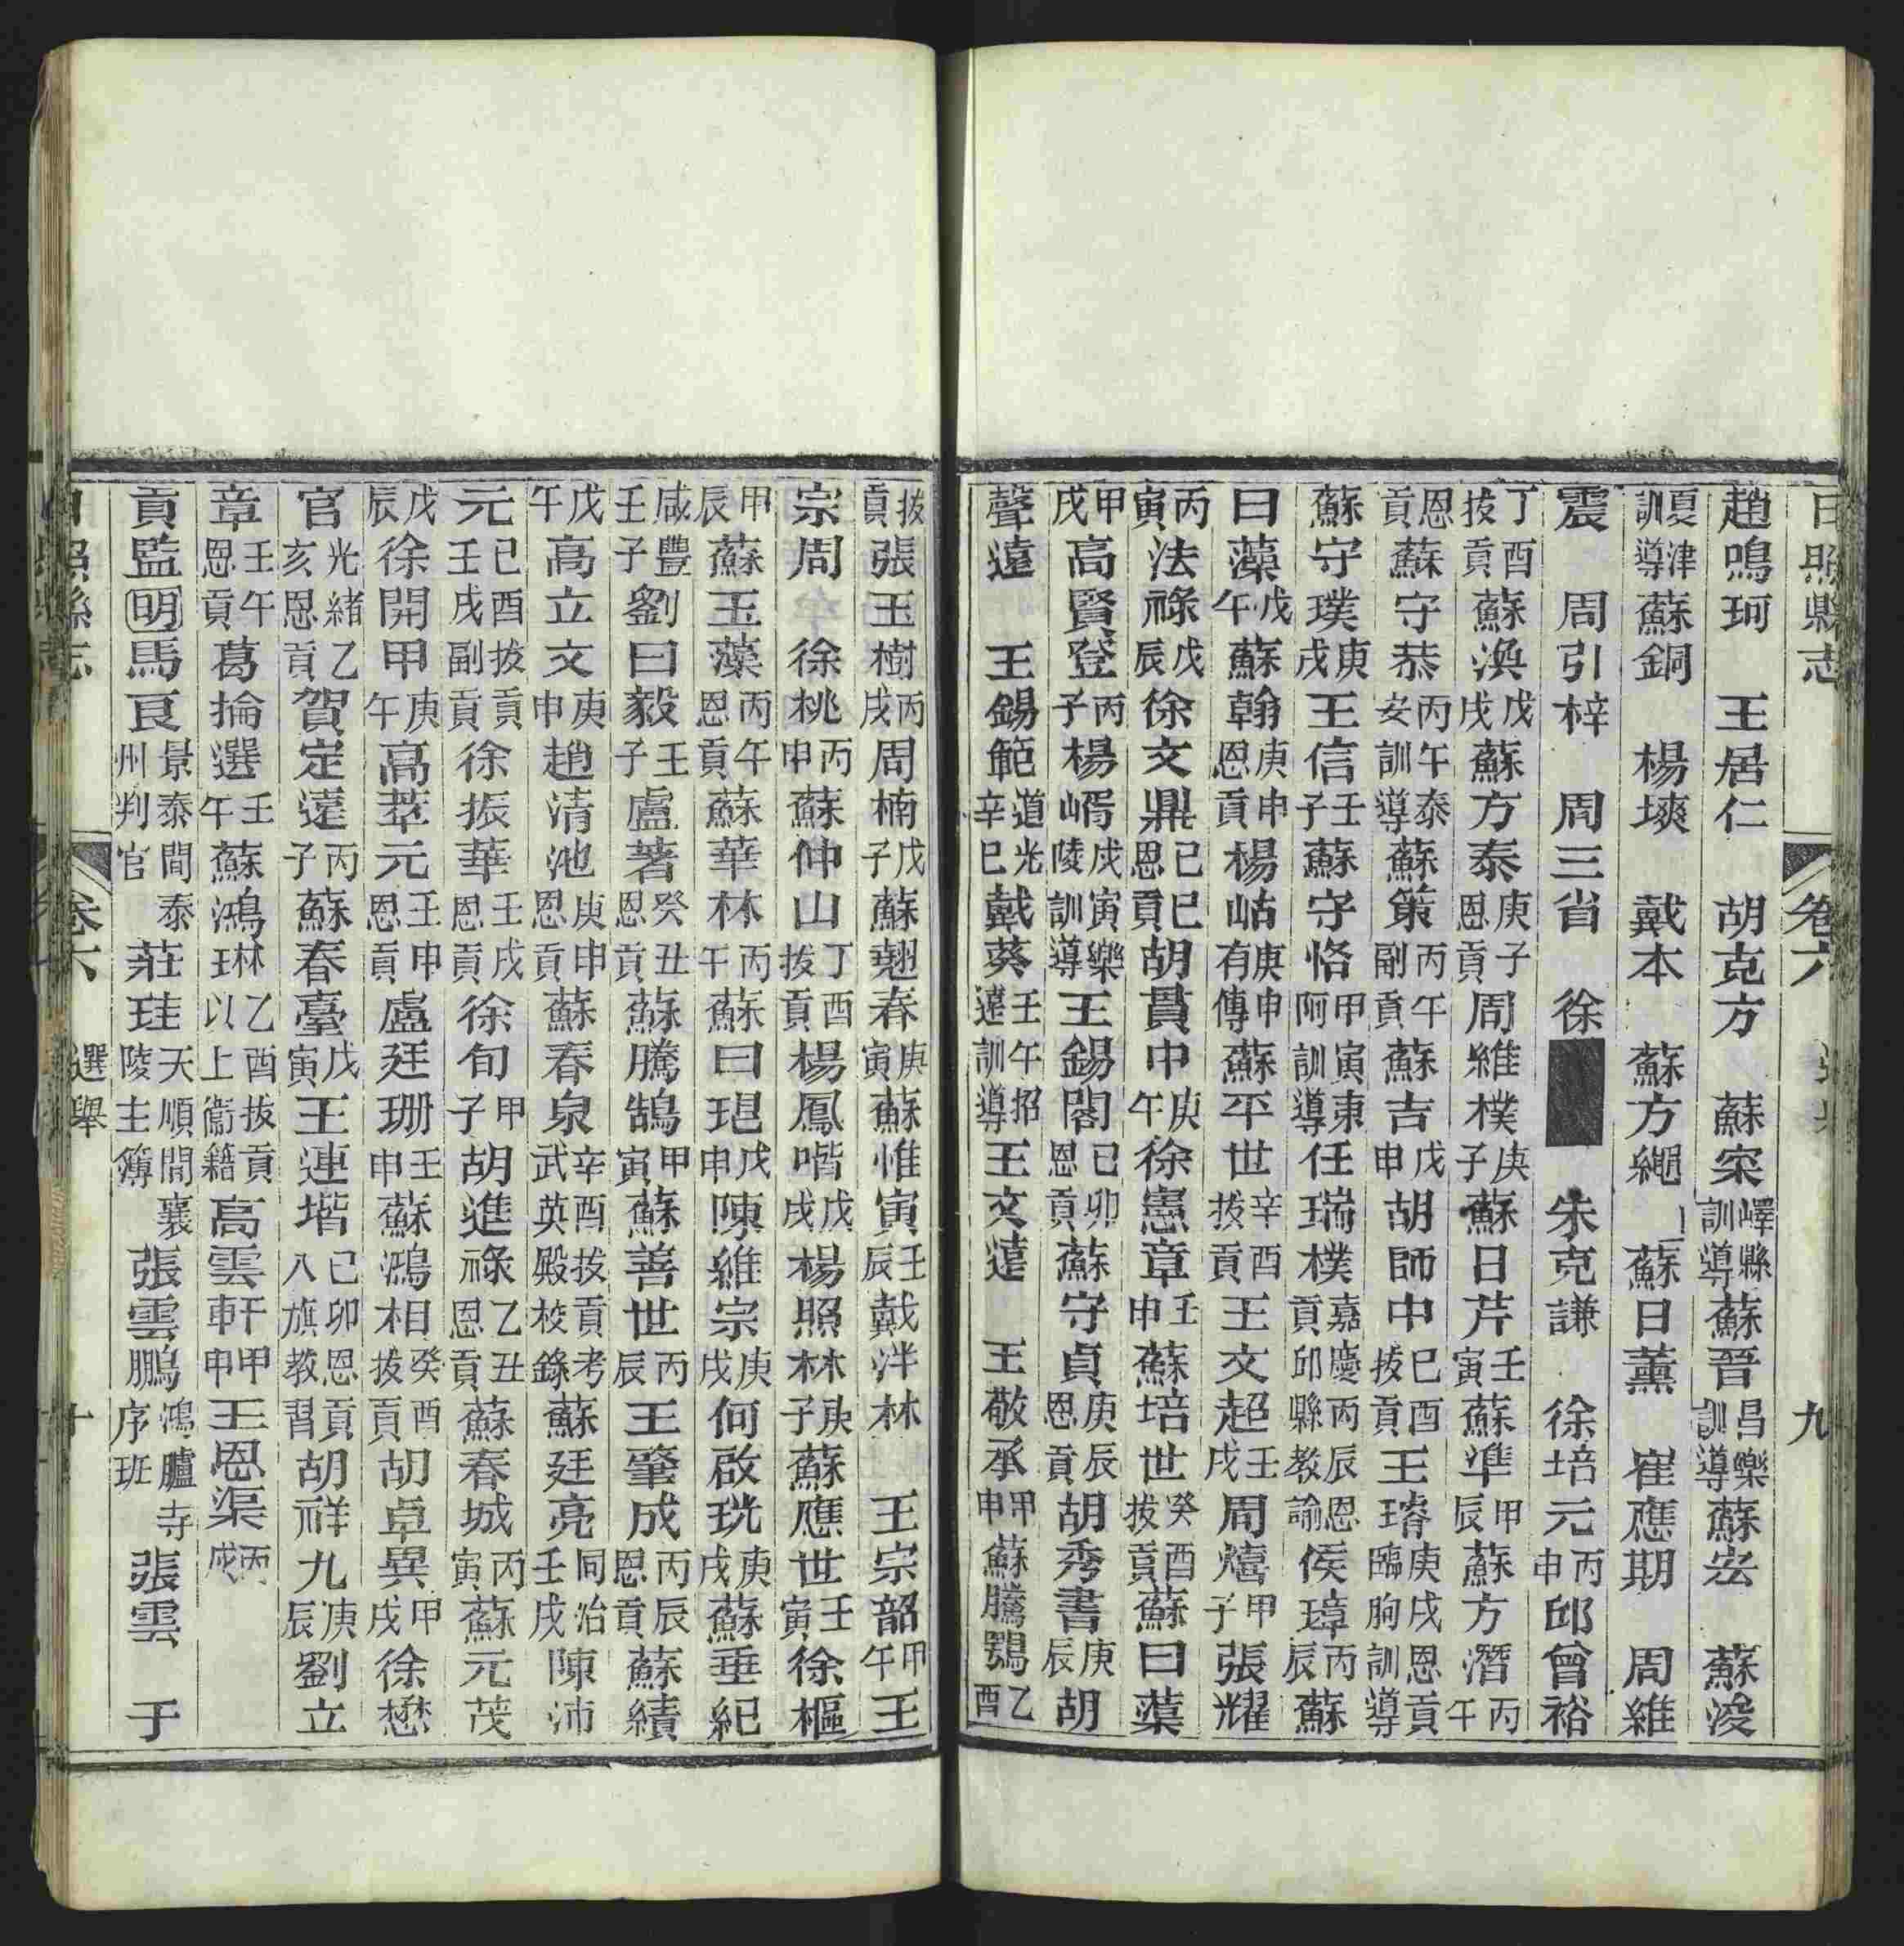 日照縣志 卷六 九
趙鳴珂 王居仁 胡克方 蘇寀嶧縣訓導蘇晉昌樂訓導蘇宏 蘇浚
夏津訓導蘇銅 楊㙇 戴本 蘇方繩 蘇日薰 崔應期 周維
震 周引梓 周三省 徐 朱克謙 徐培元丙申邱曾裕
丁酉拔貢蘇渙戊戌蘇方泰庚子恩貢周維樸庚子蘇日芹壬寅蘇準甲辰蘇方潛丙午
恩貢蘇守恭丙午泰安訓導蘇策丙午副貢蘇吉戊申胡師中巳酉拔貢王璿庚戌恩貢臨朐訓導
蘇守璞庚戌王信壬子蘇守恪甲寅東阿訓導任瑞樸嘉慶丙辰恩貢邱縣教諭侯璋丙辰蘇
日藻戊午蘇翰庚申恩貢楊岵庚申有傳蘇平世辛酉拔貢王文超壬戌周爔甲子張耀
丙寅法祿戊辰徐文鼎己巳恩貢胡貫中庚午徐憲章壬申蘇培世癸酉拔貢蘇日蕖
甲戌高賢登丙子楊崤戊寅樂陵訓導王錫閣己卯恩貢蘇守貞庚辰恩貢胡秀書庚辰胡
聲遠 王錫範道光辛巳戴葵壬午招遠訓導王文達 王敬承甲申蘇騰鶚乙酉
拔貢張玉樹丙戌周楠戊子蘇翹春庚寅蘇惟寅壬辰戴泮林 王宗韶甲午王
宗周 徐桃丙申蘇仲山丁酉拔貢楊鳳喈戊戌楊照林庚子蘇應世壬寅徐樞
甲辰蘇玉藻丙午恩貢蘇華林丙午蘇曰琩戊申陳維宗庚戌何啟珖庚戌蘇垂紀
咸豐壬子劉曰毅壬子盧著癸丑恩貢蘇騰鵠甲寅蘇善世丙辰王肇成丙辰恩貢蘇績
戊午高立文庚申趙清池庚申恩貢蘇春泉辛酉拔貢考武英殿校錄蘇廷亮同治壬戌陳沛
元己酉拔貢壬戌副貢徐振華壬戌恩貢徐旬甲子胡進祿乙丑恩貢蘇春城丙寅蘇元茂
戊辰徐開甲庚午高萃元壬申恩貢盧廷珊壬申蘇鴻相癸酉拔貢胡卓異甲戌徐懋
官光緒乙亥恩貢賀定遠丙子蘇春臺戊寅王連堦己卯恩貢八旗教習胡祥九庚辰劉立
章壬午恩貢葛掄選壬午蘇鴻琳玨乙酉拔貢以上衞籍高雲軒甲申王恩渠丙戌
貢監明馬良景泰間泰州判官莊珪天順間襄陵主簿張雲鵬鴻臚寺序班張雲 于
日照縣志 卷六 選舉 十